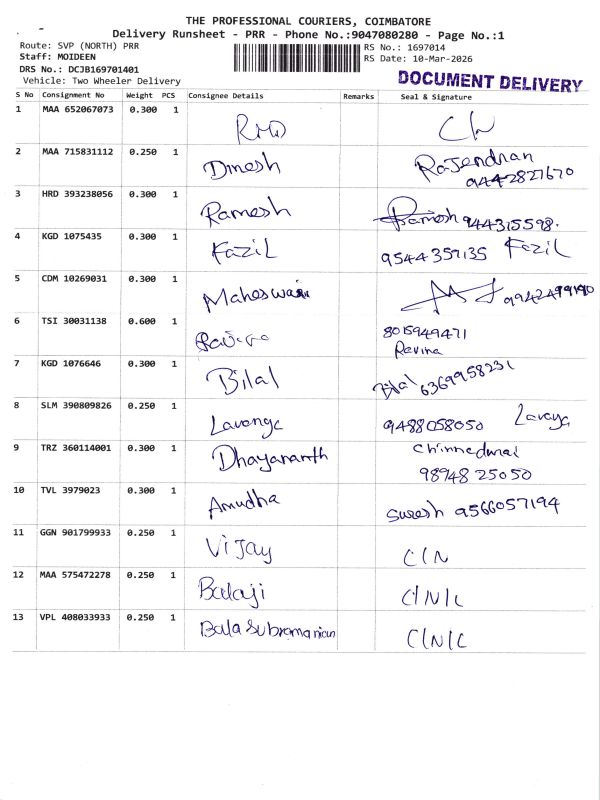 THE PROFESSIONAL COURIERS, COIMBATORE
Delivery Runsheet - PRR - Phone No.:9047080280 - Page No.:1
Route: SVP (NORTH) PRR
Staff: MOIDEEN
DRS No.: DCJB169701401
Vehicle: Two Wheeler Delivery
RS No.: 1697014
RS Date: 10-Mar-2026
DOCUMENT DELIVERY
S No Consignment No Weight PCS Consignee Details Remarks Seal & Signature
1 MAA 652067073 0.300 1
2 MAA 715831112 0.250 1 Dinesh Rajendran
9442827670
3 HRD 393238056 0.300 1 Ramesh Ramesh 944315598.
4 KGD 1075435 0.300 1 Fazil 9544359135 Fazil
5 CDM 10269031 0.300 1 Maheswari
6 TSI 30031138 0.600 1 8015949471
Ravina
7 KGD 1076646 0.300 1 Bilal Bilal 6369958231
8 SLM 390809826 0.250 1 9488058050
9 TRZ 360114001 0.300 1 Dhayananth Chinnedurai
98948 25050
10 TVL 3979023 0.300 1 Amudha Suresh 9566057194
11 GGN 901799933 0.250 1 Vijay C/N
12 MAA 575472278 0.250 1 Balaji C/N/C
13 VPL 408033933 0.250 1 Balasubramanian C/N/C